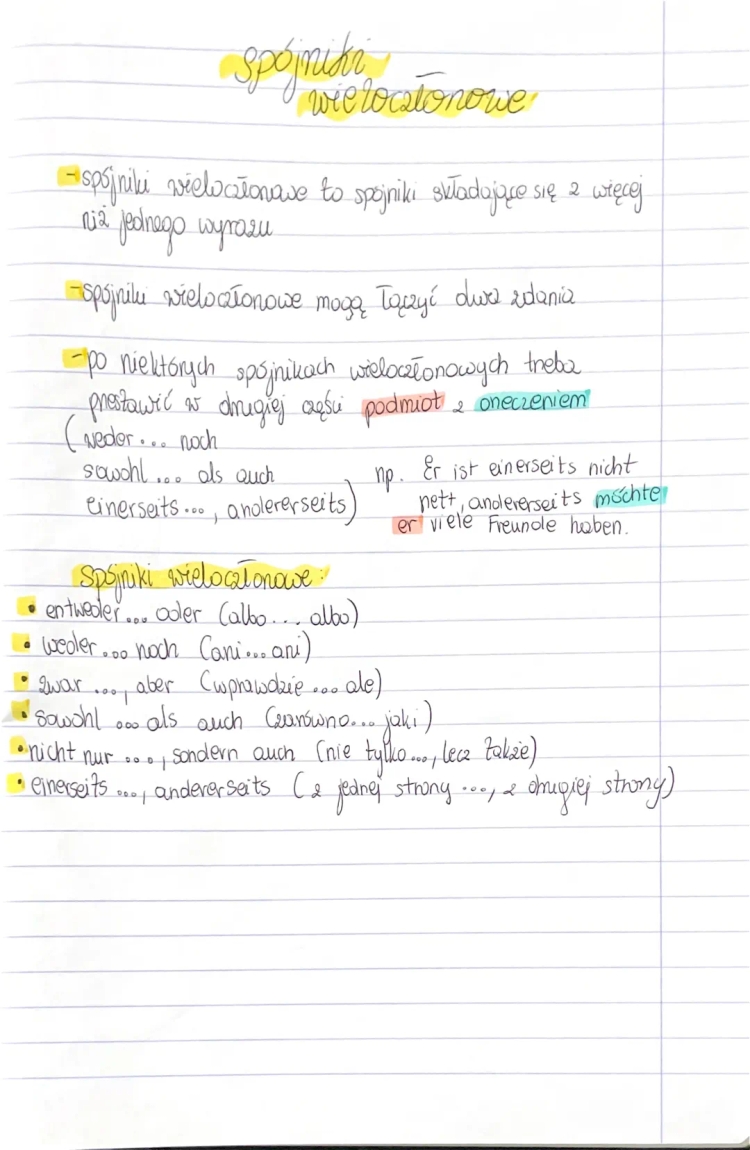 spójniki
wieloczłonowe
- spójniki wieloczłonowe to spójniki składające się z więcej
niż jednego wyrazu
- spójniki wieloczłonowe mogą łączyć dwa zdania
- po niektórych spójnikach wieloczłonowych trzeba
przestawić w drugiej części podmiot z orzeczeniem
(weder... noch
sowohl ... als auch
einerseits..., andererseits)
np. Er ist einerseits nicht
nett, andererseits möchte
er viele Freunde haben.
Spójniki wieloczłonowe:
• entweder... oder (albo... albo)
• weder... noch (ani... ani)
• zwar ..., aber (wprawdzie ... ale)
• sowohl ... als auch (zarówno... jak i)
• nicht nur ..., sondern auch (nie tylko..., lecz także)
• einerseits ..., andererseits (z jednej strony ..., z drugiej strony)